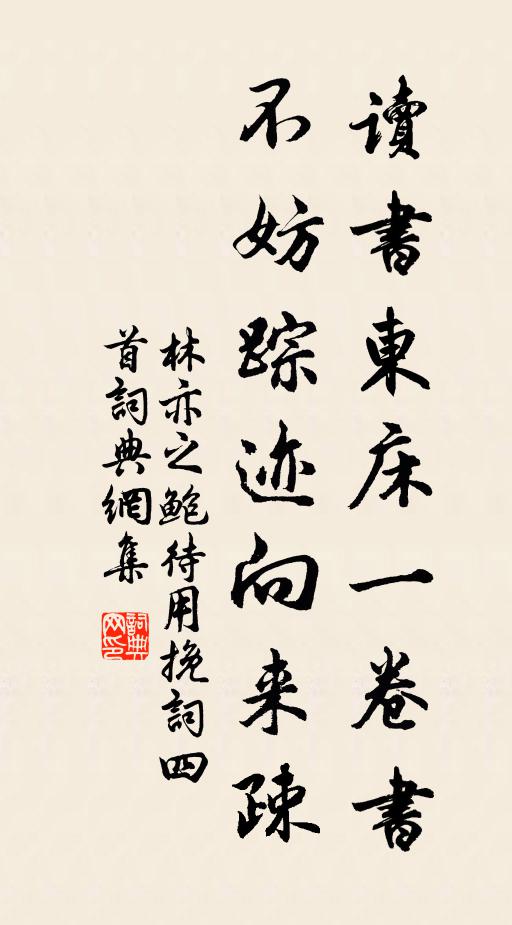 讀書東床一卷書
不妨踪迹向来疎
林亦之鲍待用挽詞四
首詞典網集
詞典网印